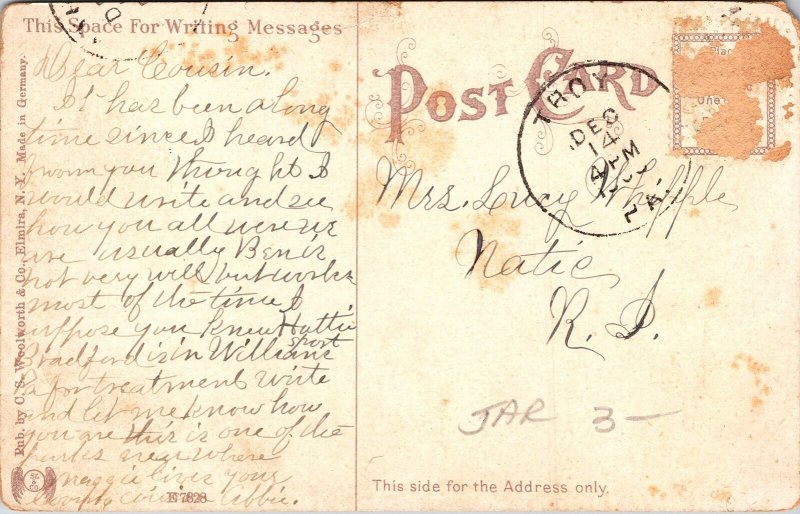 This Space For Writing Messages
Dear Cousin.
It has been a long
time since I heard
from you thought I
would write and see
how you all were we
are usually Ben is
not very well but works
most of the time I
suppose you knew Hattie
Bradford is in Williams
port
Pa for treatment write
and let me know how
you are this is one of the
parks near where
Maggie lives your
cousin Abbie.
Pub. by C. S. Woolworth & Co., Elmira, N. Y. Made in Germany.
E 7828
POST CARD
Place
One
TROY
DEC
14
4 PM
PA.
Mrs. Lucy Whipple
Natic
R. I.
JAR 3-
This side for the Address only.